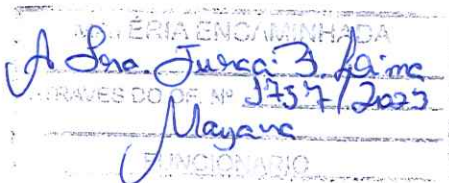 MATÉRIA ENCAMINHADA
A Sra. Juraci Lima
ATRAVÉS DO OF. Nº 1737/2023
Mayana
FUNCIONARIO